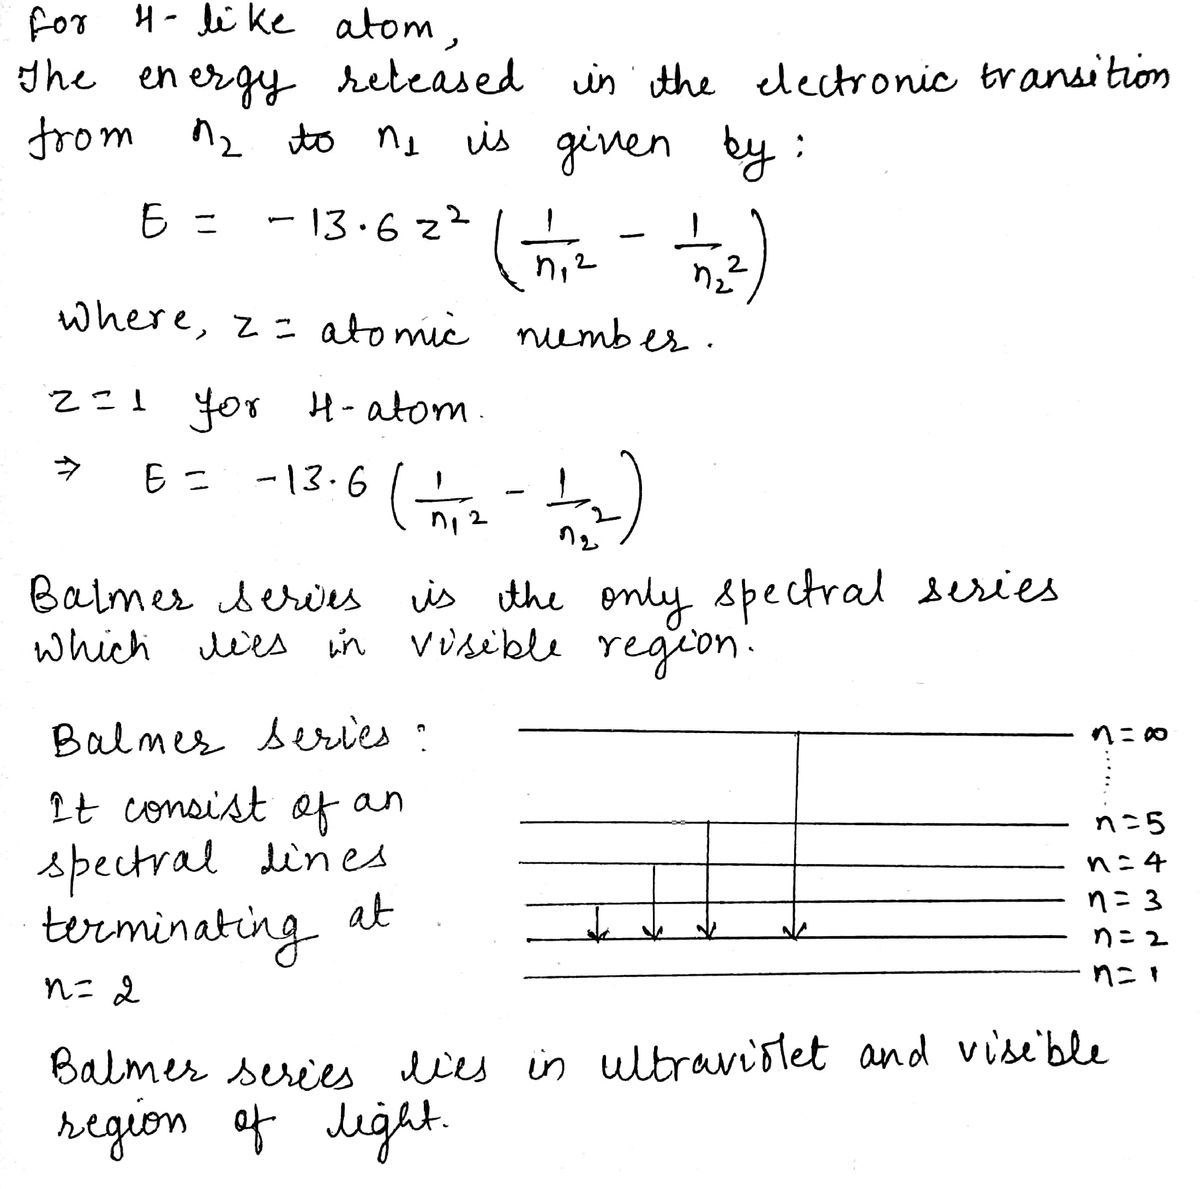 for H-like atom,
The energy released in the electronic transition
from n₂ to n₁ is given by :
E = -13.6 z² (1/n₁² - 1/n₂²)
where, z = atomic number.
z=1 for H-atom.
⇒ E = -13.6 (1/n₁² - 1/n₂²)
Balmer series is the only spectral series
which lies in visible region.
Balmer series :
It consist of an
spectral lines
terminating at
n= 2
n=∞
n=5
n=4
n=3
n=2
n=1
Balmer series lies in ultraviolet and visible
region of light.